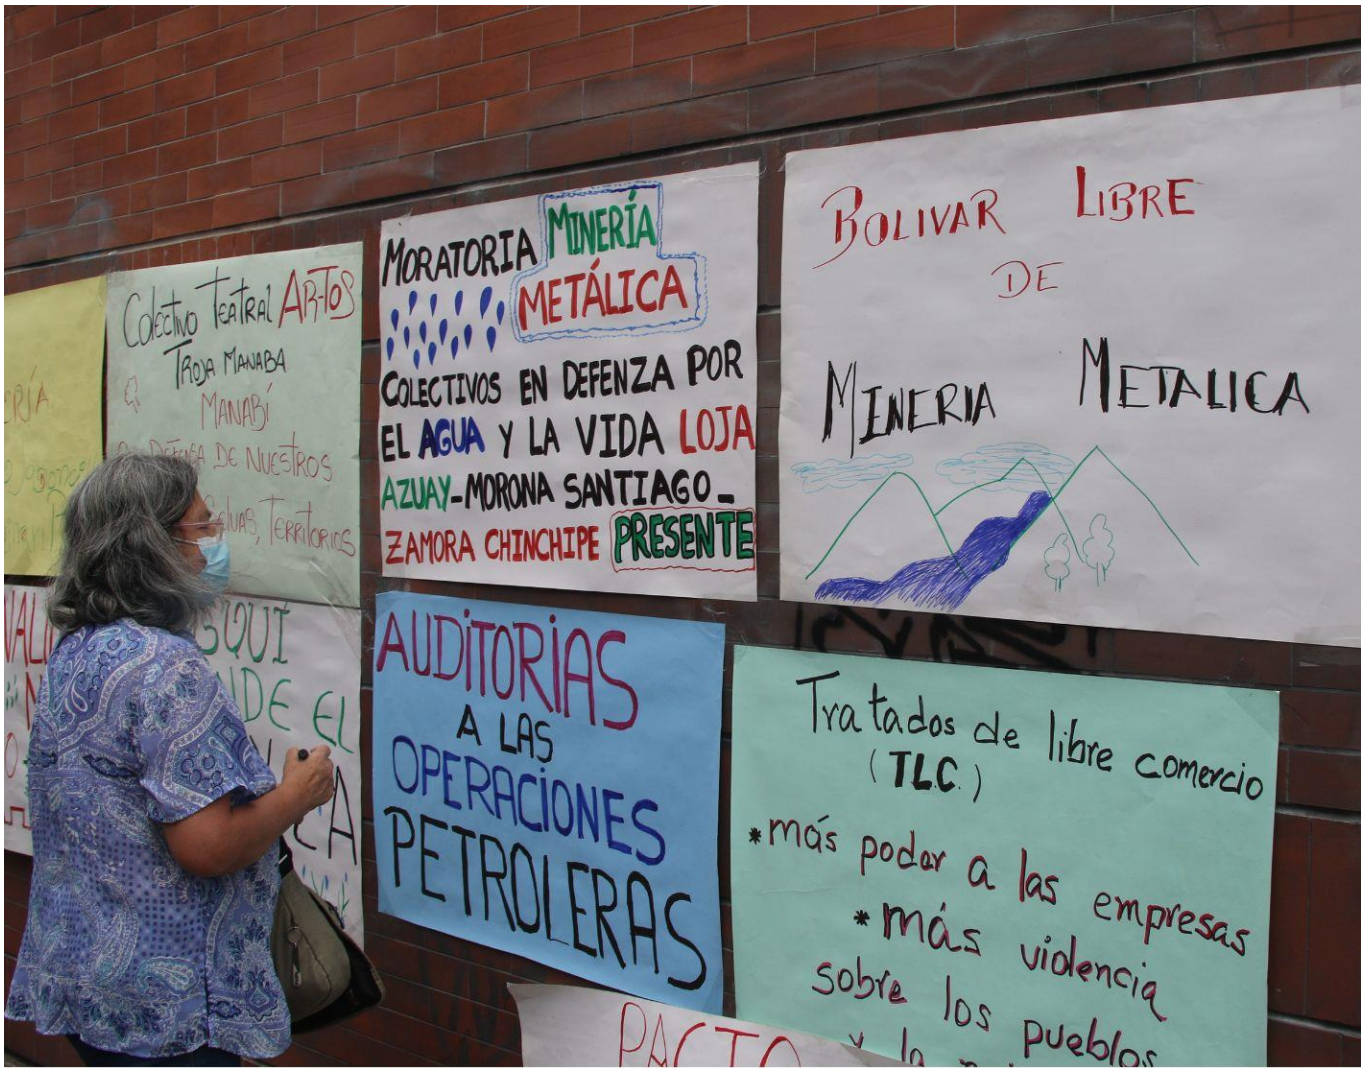 Colectivo Teatral AR-TOS
TROJA MANABA
MANABÍ
DEFENSA DE NUESTROS
SELVAS, TERRITORIOS
MORATORIA MINERÍA
METÁLICA
COLECTIVOS EN DEFENZA POR
EL AGUA Y LA VIDA LOJA
AZUAY-MORONA SANTIAGO-
ZAMORA CHINCHIPE PRESENTE
BOLIVAR LIBRE
DE
MINERIA METALICA
EL
AUDITORIAS
A LAS
OPERACIONES
PETROLERAS
Tratados de libre comercio
(TLC.)
*más podar a las empresas
*más violencia
sobre los pueblos
y la
PACTO